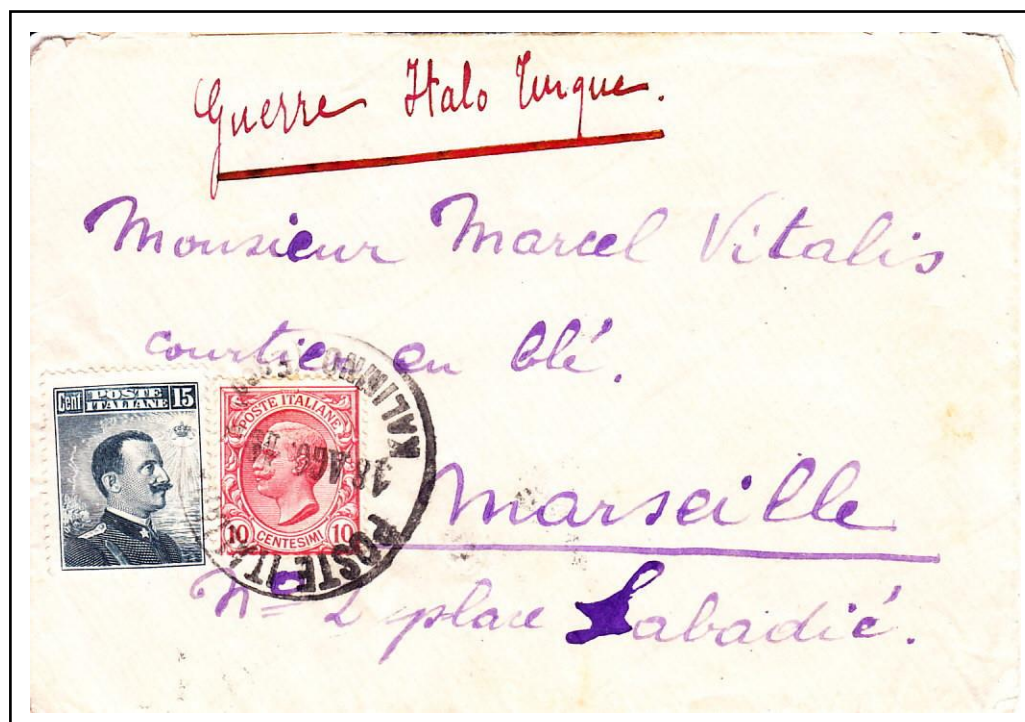 Guerre Italo Turque.
Monsieur Marcel Vitalis
courtier en blé.
Marseille
Nº 2 place Labadié.
Cent POSTE ITALIANE 15
POSTE ITALIANE
10 CENTESIMI 10
KALIMNO
18 AGO.
POSTE ITA